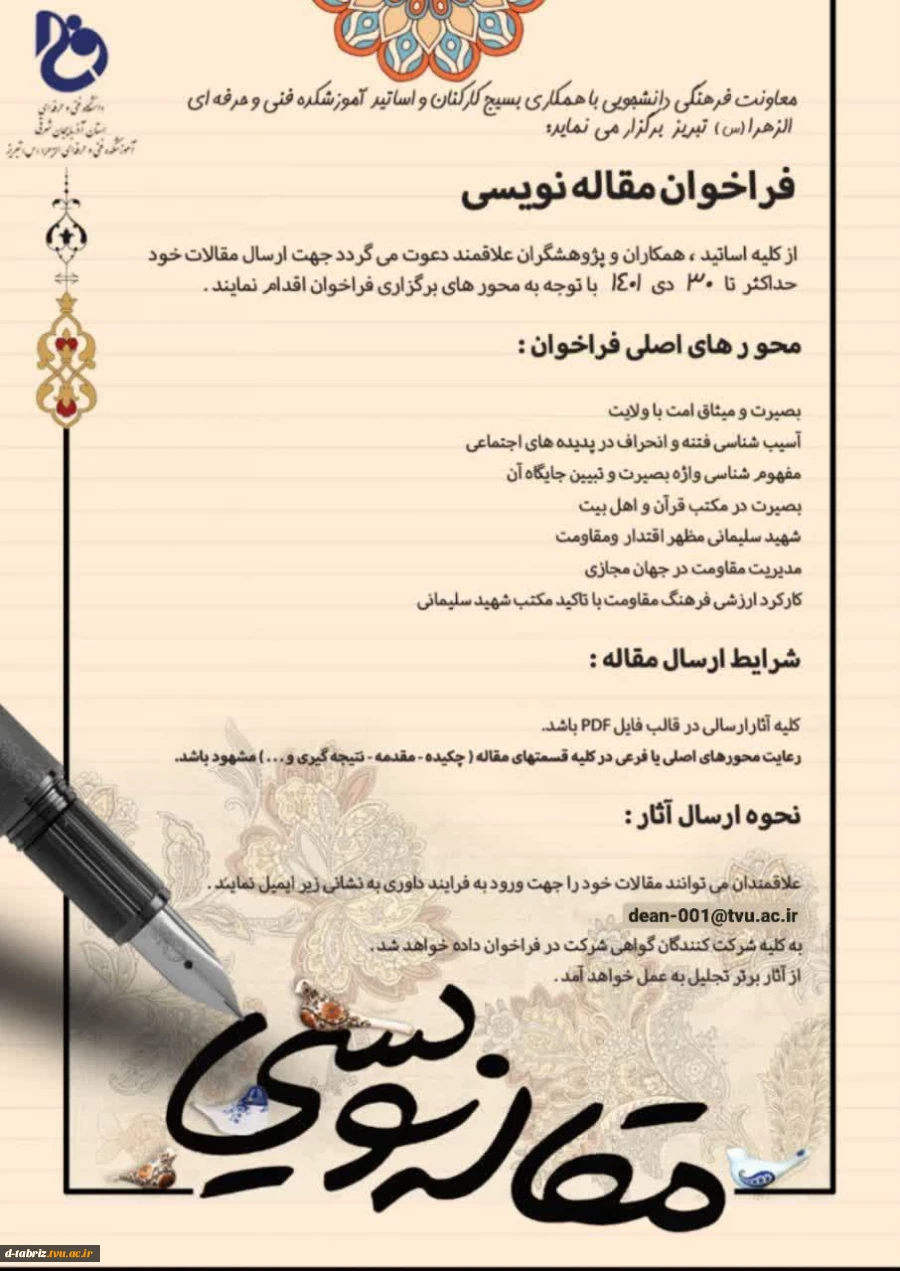 دانشگاه فنی و حرفه‌ای
استان آذربایجان شرقی
آموزشکده فنی و حرفه‌ای الزهرا (س) تبریز
معاونت فرهنگی دانشجویی با همکاری بسیج کارکنان و اساتید آموزشکده فنی و حرفه ای
الزهرا (س) تبریز برگزار می نماید:
فراخوان مقاله نویسی
از کلیه اساتید ، همکاران و پژوهشگران علاقمند دعوت می گردد جهت ارسال مقالات خود
حداکثر تا ۳۰ دی ۱۴۰۱ با توجه به محور های برگزاری فراخوان اقدام نمایند .
محو ر های اصلی فراخوان :
بصیرت و میثاق امت با ولایت
آسیب شناسی فتنه و انحراف در پدیده های اجتماعی
مفهوم شناسی واژه بصیرت و تبیین جایگاه آن
بصیرت در مکتب قرآن و اهل بیت
شهید سلیمانی مظهر اقتدار ومقاومت
مدیریت مقاومت در جهان مجازی
کارکرد ارزشی فرهنگ مقاومت با تاکید مکتب شهید سلیمانی
شرایط ارسال مقاله :
کلیه آثارارسالی در قالب فایل PDF باشد.
رعایت محورهای اصلی یا فرعی در کلیه قسمتهای مقاله ( چکیده - مقدمه - نتیجه گیری و . . . ) مشهود باشد.
نحوه ارسال آثار :
علاقمندان می توانند مقالات خود را جهت ورود به فرایند داوری به نشانی زیر ایمیل نمایند .
dean-001@tvu.ac.ir
به کلیه شرکت کنندگان گواهی شرکت در فراخوان داده خواهد شد .
از آثار برتر تجلیل به عمل خواهد آمد .
مقاله نویسی
d-tabriz.tvu.ac.ir